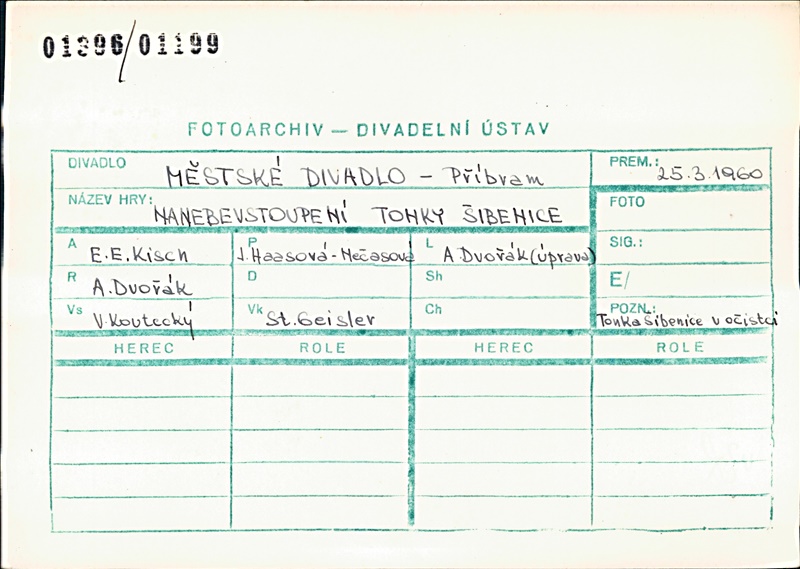 01396/01199
FOTOARCHIV — DIVADELNÍ ÚSTAV
DIVADLO MĚSTSKÉ DIVADLO - Příbram PREM.: 25.3.1960
NÁZEV HRY: NANEBEVSTOUPENÍ TONKY ŠIBENICE FOTO
A E.E.Kisch P J.Haasová-Nečasová L A.Dvořák(úprava) SIG.:
R A.Dvořák D Sh E/
Vs V.Koutecký Vk St.Geisler Ch POZN.: Tonka Šibenice v očistci
HEREC ROLE HEREC ROLE